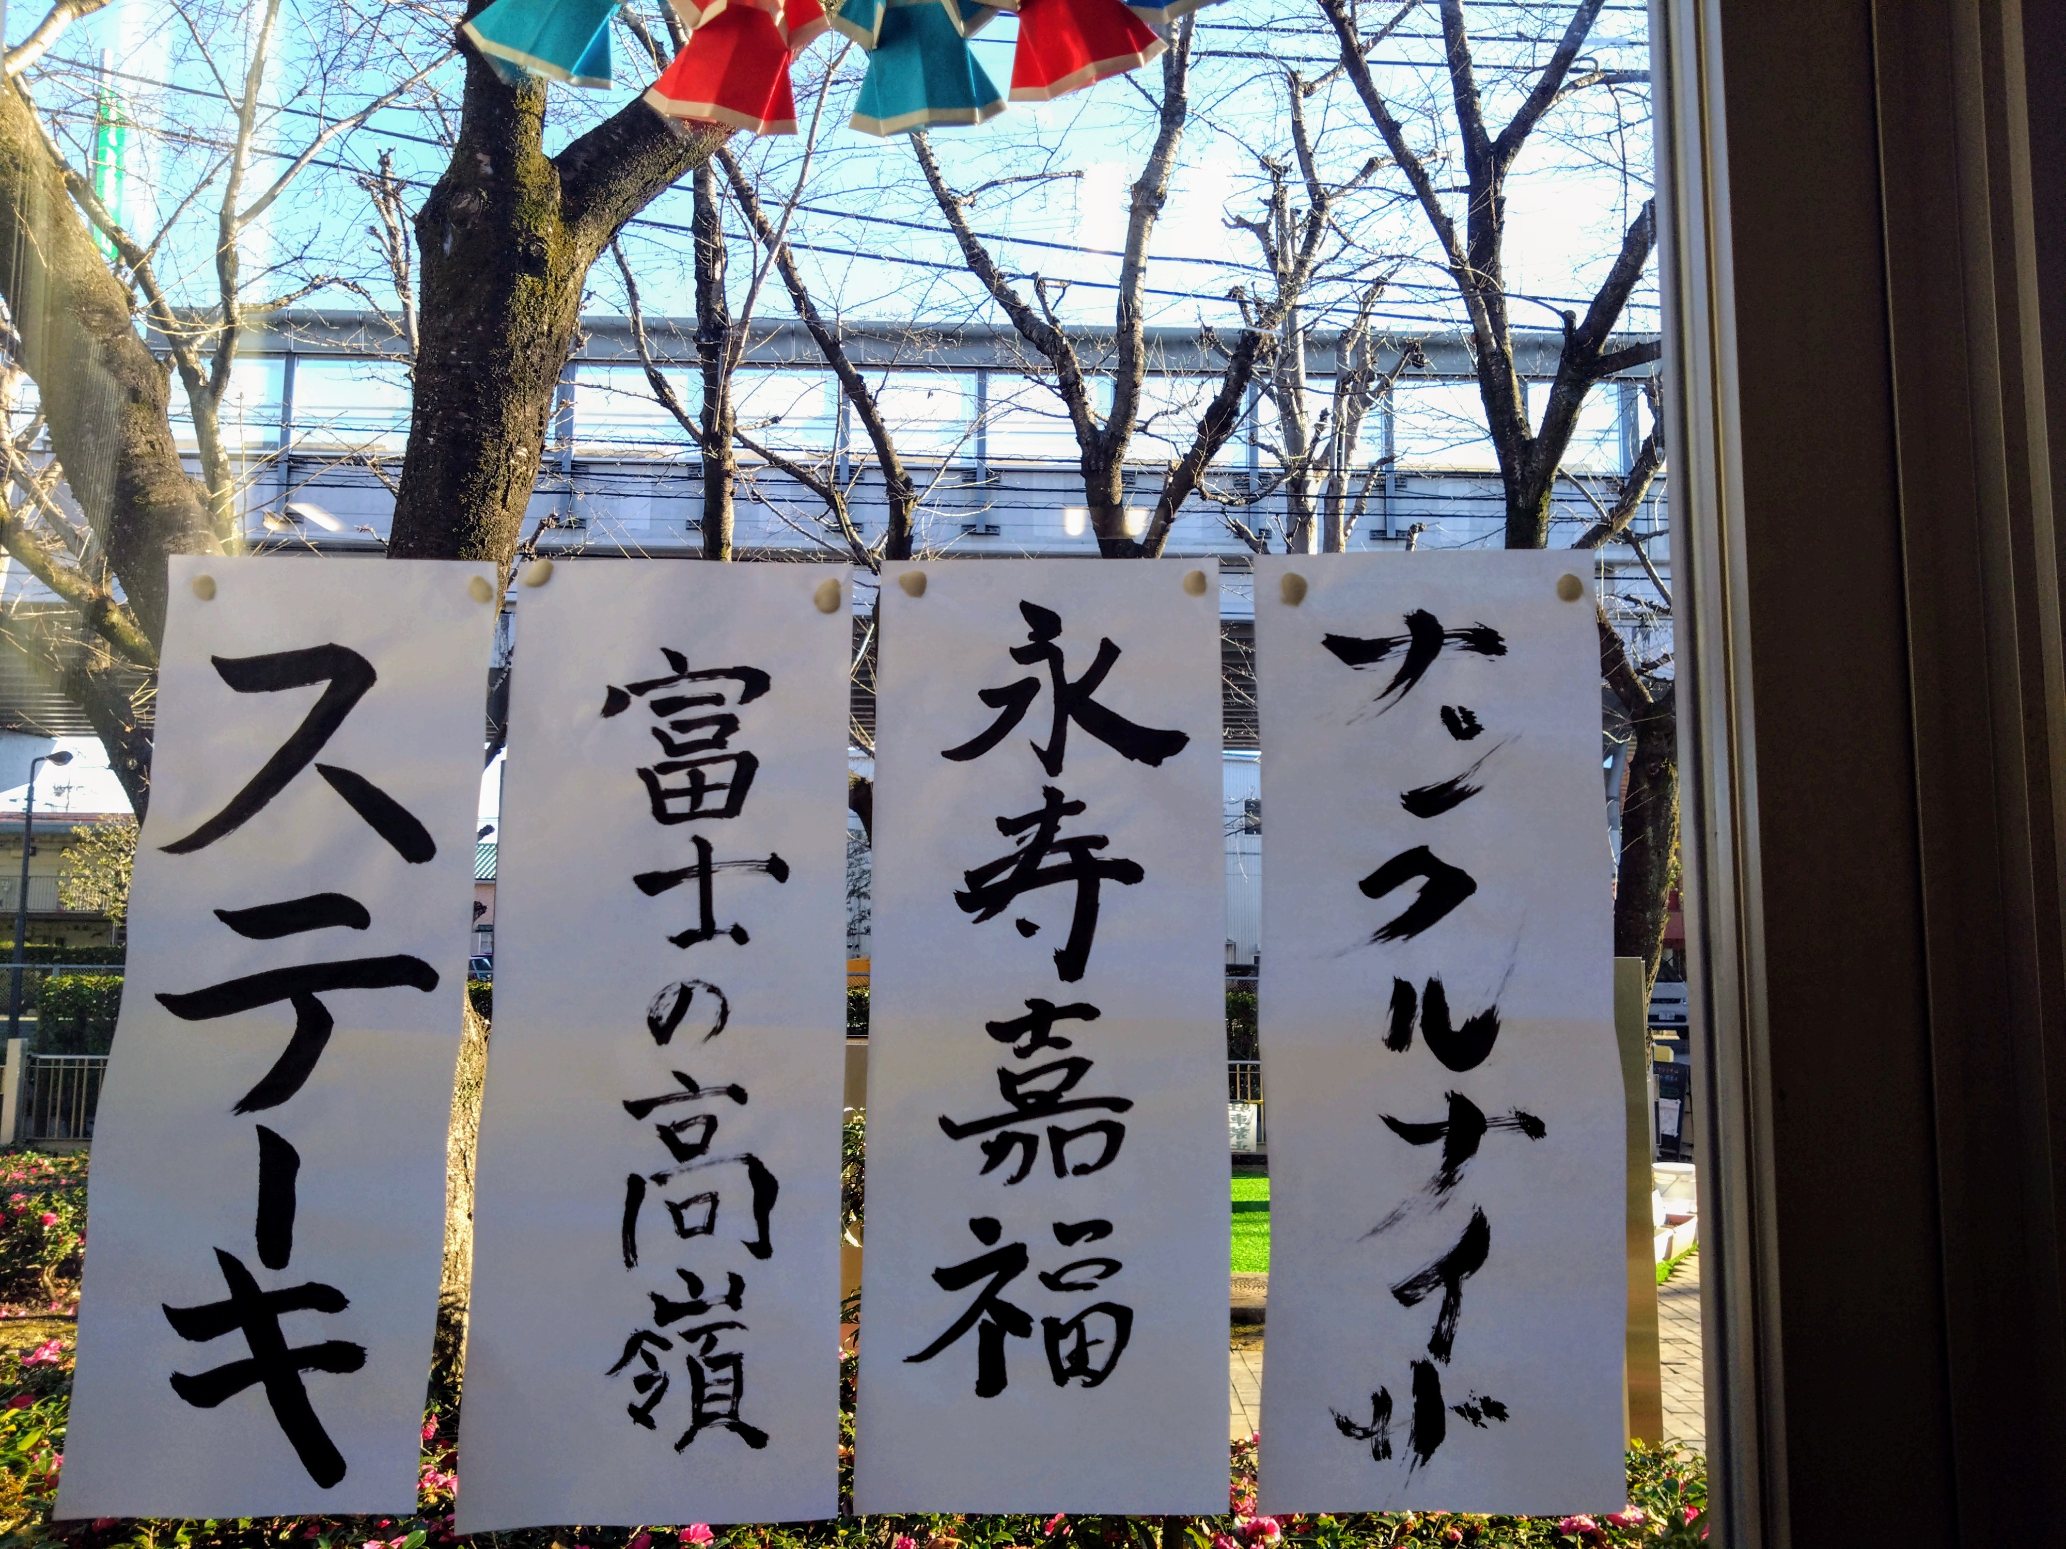 ナンクルナイサ
永寿嘉福
富士の高嶺
ステーキ